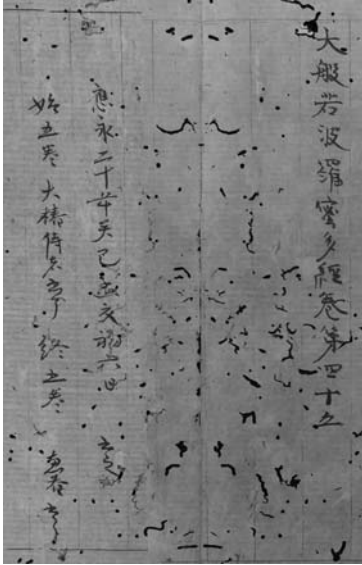 大般若波羅蜜多經卷第四十五
應永二十年癸巳孟夏初六日
始五巻 大椿侍者書了 終五巻